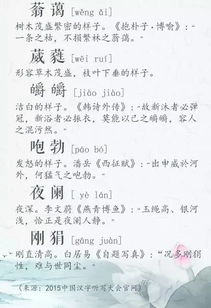 蓊蔼[wěng ǎi]
树木茂盛繁密的样子。《抱朴子·博喻》：“
一条之枯，不损繁林之蓊蔼。”
葳蕤[wēi ruí]
形容草木茂盛，枝叶下垂的样子。
皭皭[jiào jiào]
洁白的样子。《韩诗外传》：“故新沐者必弹
冠，新浴者必振衣，莫能以己之皭皭，容人
之混污然。”
咆勃[páo bó]
发怒的样子。潘岳《西征赋》：“出申威於河
外，何猛气之咆勃。”
夜阑[yè lán]
夜深。李文蔚《燕青博鱼》：“玉绳高、银河
浅，恰正是夜阑人静。”
刚狷[gāng juàn]
刚直清高。白居易《自题写真》：“况多刚狷
性，难与世同尘。”
（来源：2015中国汉字听写大会官网）